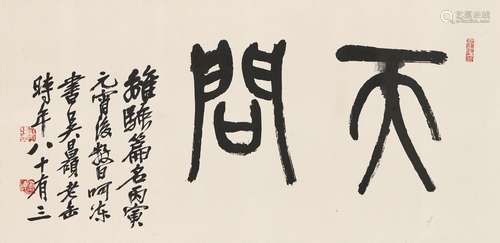 天問
離騷篇名丙寅
元宵後數日呵凍
書吳昌碩老缶
時年八十有三